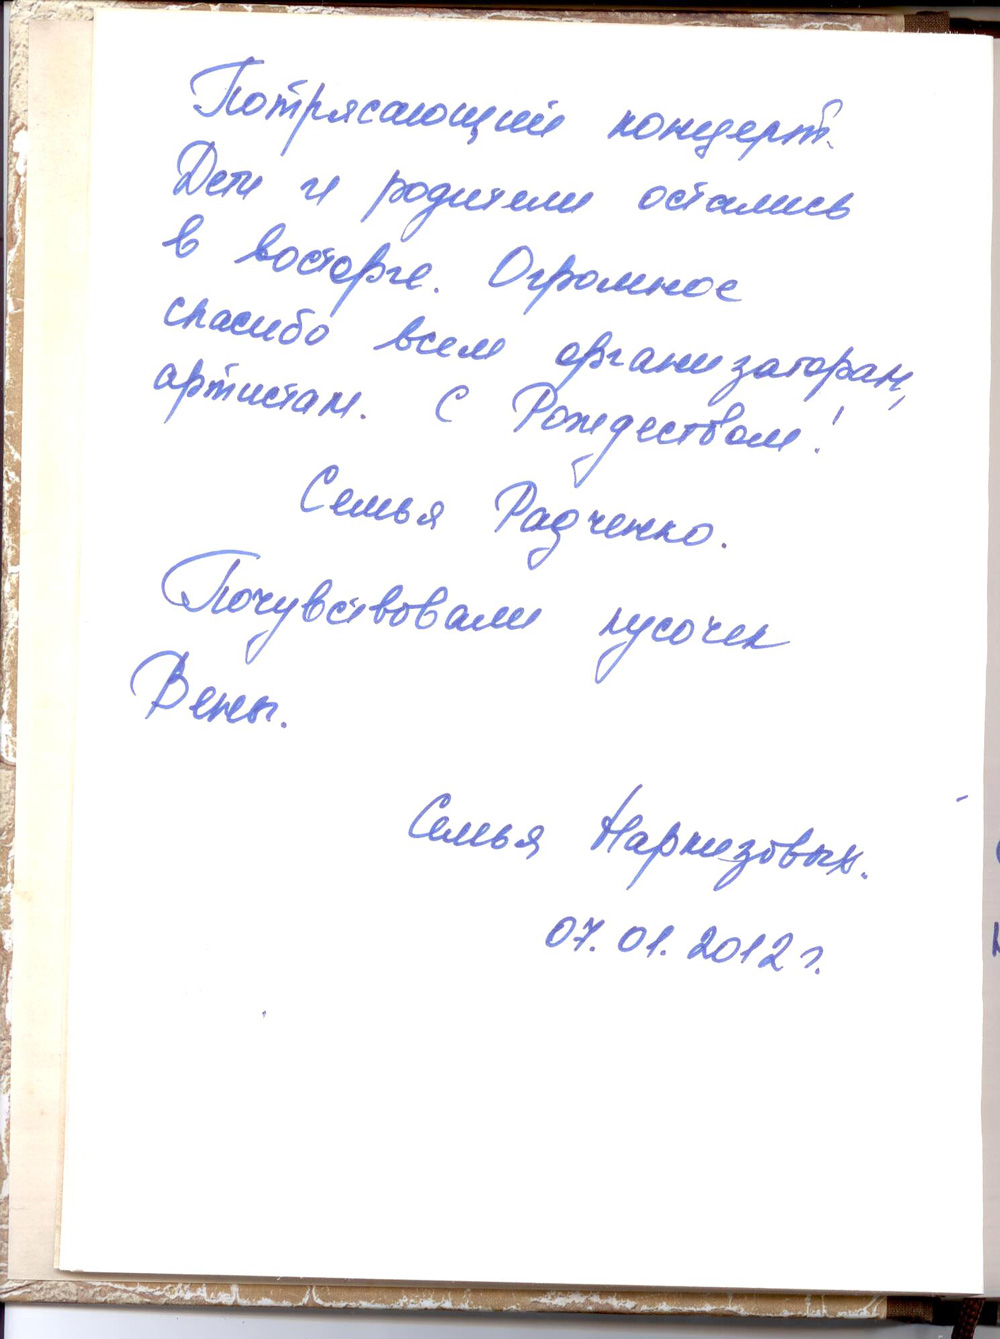 Потрясающий концерт.
Дети и родители остались
в восторге. Огромное
спасибо всем организаторам,
артистам. С Рождеством!
Семья Радченко.
Почувствовали кусочек
Вены.
Семья
07.01.2012 г.